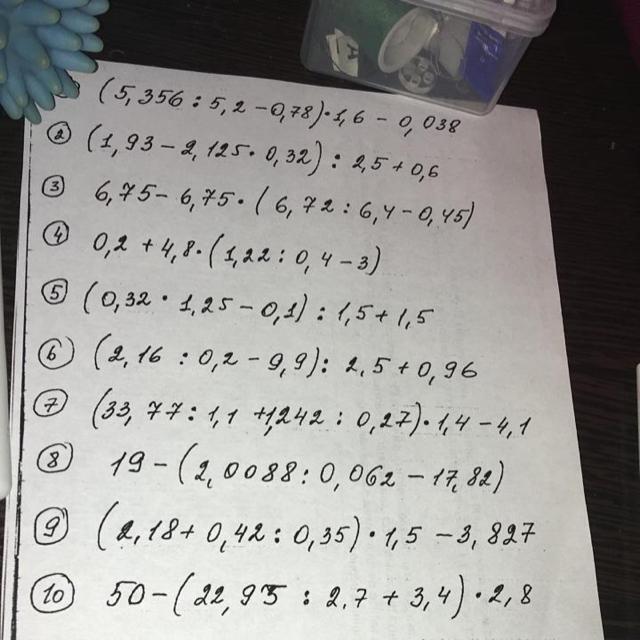 (5,356 : 5,2 - 0,78) · 1,6 - 0,038
② (1,93 - 2,125 · 0,32) : 2,5 + 0,6
③ 6,75 - 6,75 · (6,72 : 6,4 - 0,45)
④ 0,2 + 4,8 · (1,22 : 0,4 - 3)
⑤ (0,32 · 1,25 - 0,1) : 1,5 + 1,5
⑥ (2,16 : 0,2 - 9,9) : 2,5 + 0,96
⑦ (33,77 : 1,1 + 1,242 : 0,27) · 1,4 - 4,1
⑧ 19 - (2,0088 : 0,062 - 17,82)
⑨ (2,18 + 0,42 : 0,35) · 1,5 - 3,827
⑩ 50 - (22,95 : 2,7 + 3,4) · 2,8